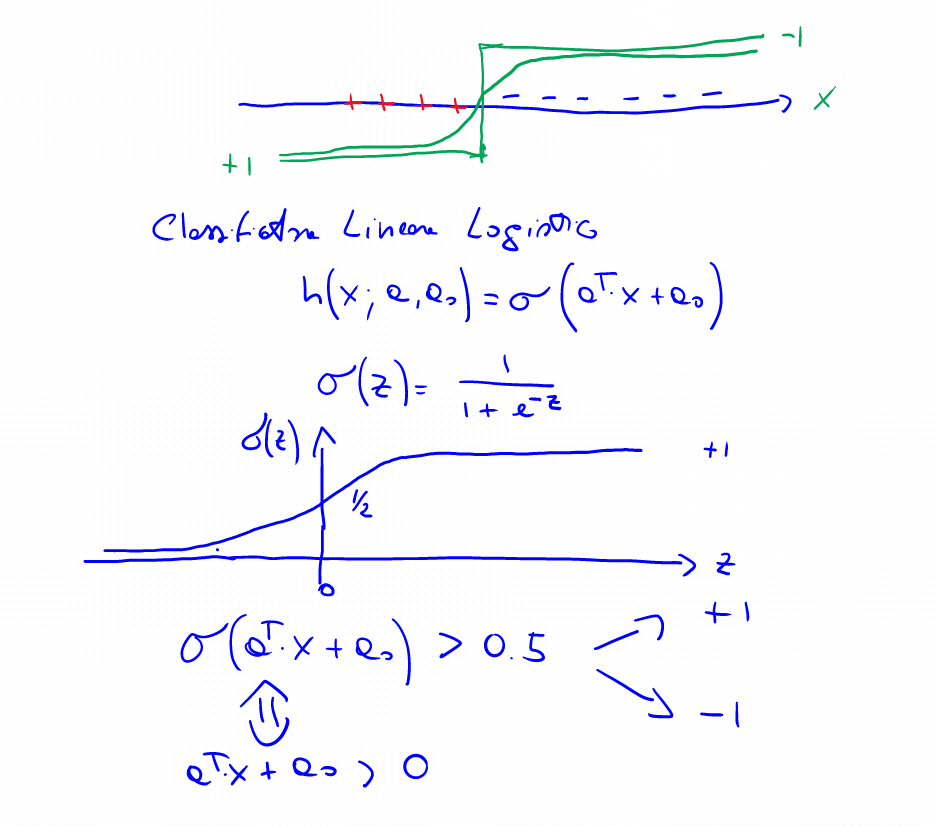 -1
+ + + + - - - - - - x
+1
Classificatore Lineare Logistico
h(x; θ, θ₀) = σ(θᵀ·x + θ₀)
σ(z) = 1 / (1 + e⁻ᶻ)
σ(z) +1
1/2
z
0
σ(θᵀ·x + θ₀) > 0.5 +1
-1
⇕
θᵀ·x + θ₀ > 0